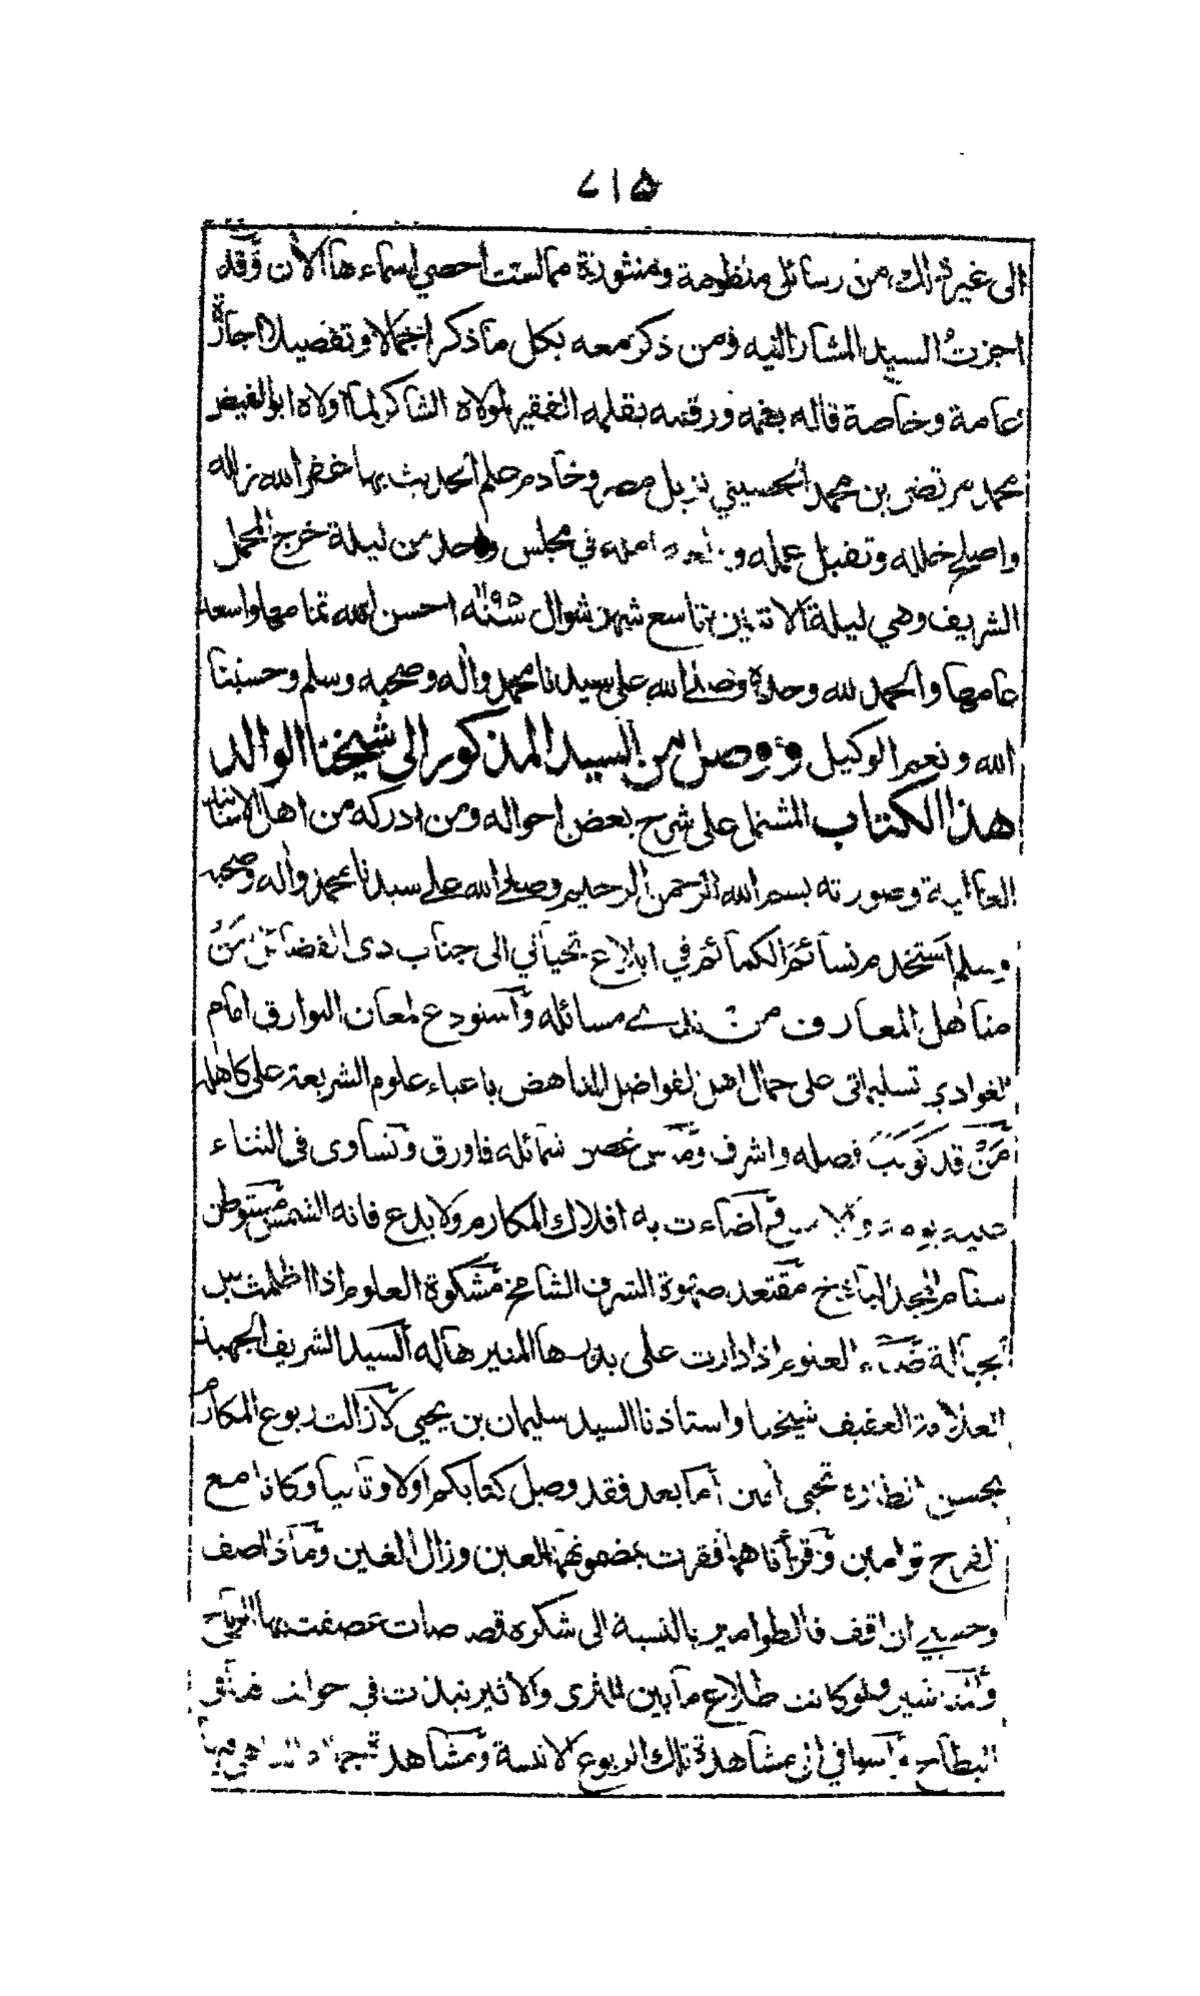 ٢١٥
الى غير ذلك من رسائل منظومة ومنثورة مما لست احصي اسماءها الآن وقد
اجزت السيد المشار اليه ومن ذكر معه بكل ما ذكر اجمالا وتفصيلا اجازة
عامة وخاصة قاله بفمه ورقمه بقلمه الفقير لمولاه الشاكر لما اولاه ابو الفيض
محمد مرتضى بن محمد الحسيني نزيل مصر وخادم علم الحديث بها غفر الله زلله
واصلح خلله وتقبل عمله امله في مجلس واحد من ليلة خرج المحمل
الشريف وهي ليلة الاثنين تاسع شهر شوال سنة احسن الله تمامها واسعد
عامها والحمد لله وحده وصلى الله على سيدنا محمد وآله وصحبه وسلم وحسبنا
الله ونعم الوكيل ووصل من السيد المذكور الى شيخنا الوالد
هذا الكتاب المشتمل على شرح بعض احواله ومن ادركه من اهل الاسناد
العالية وصورته بسم الله الرحمن الرحيم وصلى الله على سيدنا محمد وآله وصحبه
وسلم استخدم نسائم الكمائم في ابلاغ تحياتي الى جناب ذى الفضائل من
مناهل المعارف من مسائله واستودع لمعان البوارق امام
الغوادي تسليماتي على جمال اهل الفواضل الناهض باعباء علوم الشريعة على كاهله
من قد كوكب فضله واشرف غصن شمائله فاورق وتساوى في الثناء
اضاءت به افلاك المكارم ولا بدع فانه الشمس مستوطن
سنام المجد الباذخ مقتعد صهوة الشرف الشامخ مشكوة العلوم اذا اظلمت
ضياء العلوم اذا دارت على بدرها المنير هاله السيد الشريف الجهبذ
العلامة العفيف شيخنا واستاذنا السيد سليمان بن يحيى لا زالت ربوع المكارم
بحسن انظاره تحيى امين اما بعد فقد وصل كتابكم اولا وثانيا وكانا مع
الفرح توامين وقرأناهما فقرت بمضمونهما العين وزال الغين وماذا اصف
وحسبي ان اقف فالطوامير بالنسبة الى شكره قصاصات عصفت بها الرياح
ولو كانت طلاع ما بين الثرى والاثير نبذت في
البطاح الى مشاهدة تلك الربوع الانسة ومشاهد